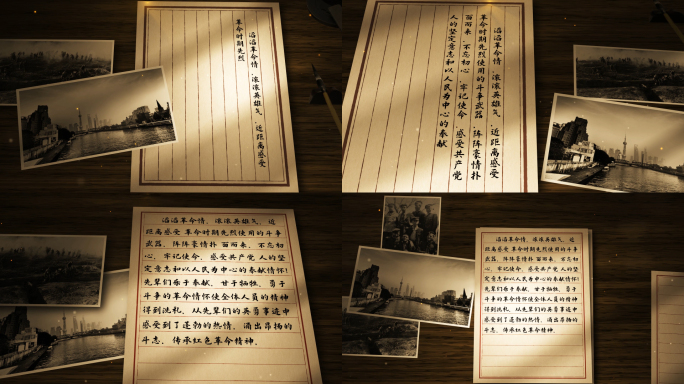 滔滔革命情,滚滚英雄气,近距离感受
革命时期先烈
滔滔革命情,滚滚英雄气,近距离感受
革命时期先烈使用的斗争武器,阵阵豪情扑
面而来,不忘初心,牢记使命,感受共产党
人的坚定意志和以人民为中心的奉献
滔滔革命情,滚滚英雄气,近
距离感受 革命时期先烈使用的斗争
武器,阵阵豪情扑 面而来,不忘初
心,牢记使命,感受共产党 人的坚
定意志和以人民为中心的奉献情怀!
先辈们乐于奉献,甘于牺牲,勇于
斗争的革命情怀使全体人员的精神
得到洗礼,从先辈们的英勇事迹中
感受到了蓬勃的热情,涌出昂扬的
斗志,传承红色革命精神。
滔滔革命情,滚滚英雄气,近
距离感受 革命时期先烈使用的斗争
武器,阵阵豪情扑 面而来,不忘初
心,牢记使命,感受共产党 人的坚
定意志和以人民为中心的奉献情怀!
先辈们乐于奉献,甘于牺牲,勇于
斗争的革命情怀使全体人员的精神
得到洗礼,从先辈们的英勇事迹中
感受到了蓬勃的热情,涌出昂扬的
斗志,传承红色革命精神。